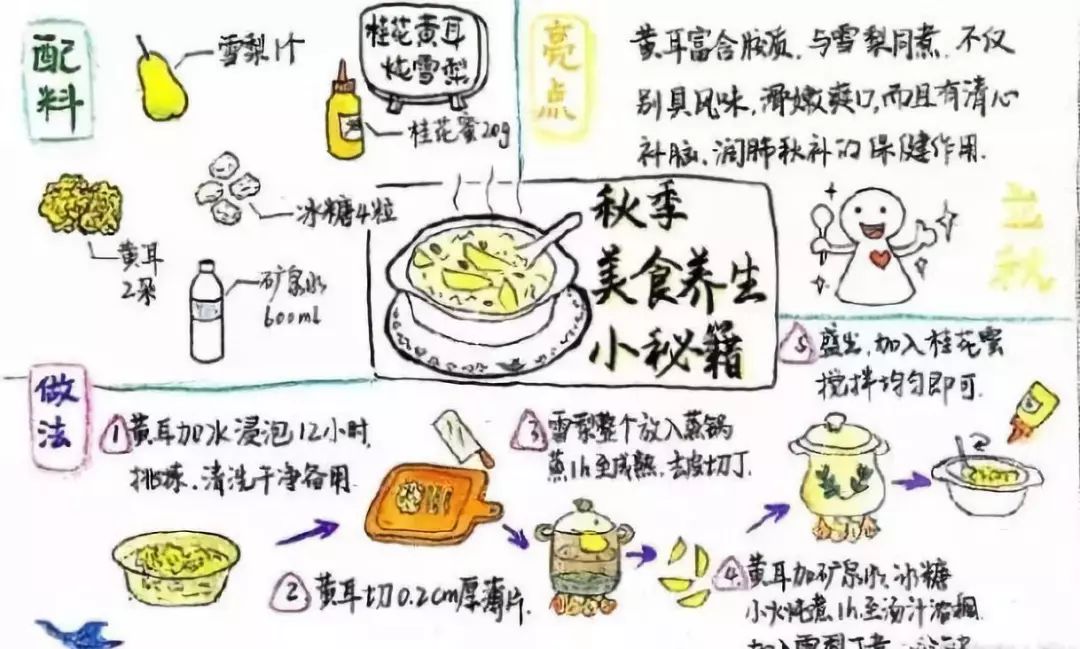 配料
雪梨1个
桂花黄耳
炖雪梨
桂花蜜20g
冰糖4粒
黄耳
2朵
矿泉水
600ml
亮点
黄耳富含胶质，与雪梨同煮，不仅
别具风味，滑嫩爽口，而且有清心
补脑、润肺秋补的保健作用.
立秋
秋季
美食养生
小秘籍
做法
1 黄耳加水浸泡12小时，
挑拣、清洗干净备用
2 黄耳切0.2cm厚薄片.
3 雪梨整个放入蒸锅
蒸1h至成熟，去皮切丁.
4 黄耳加矿泉水、冰糖
小火炖煮1h至汤汁浓稠
加入雪梨丁煮
5 盛出，加入桂花蜜
搅拌均匀即可.